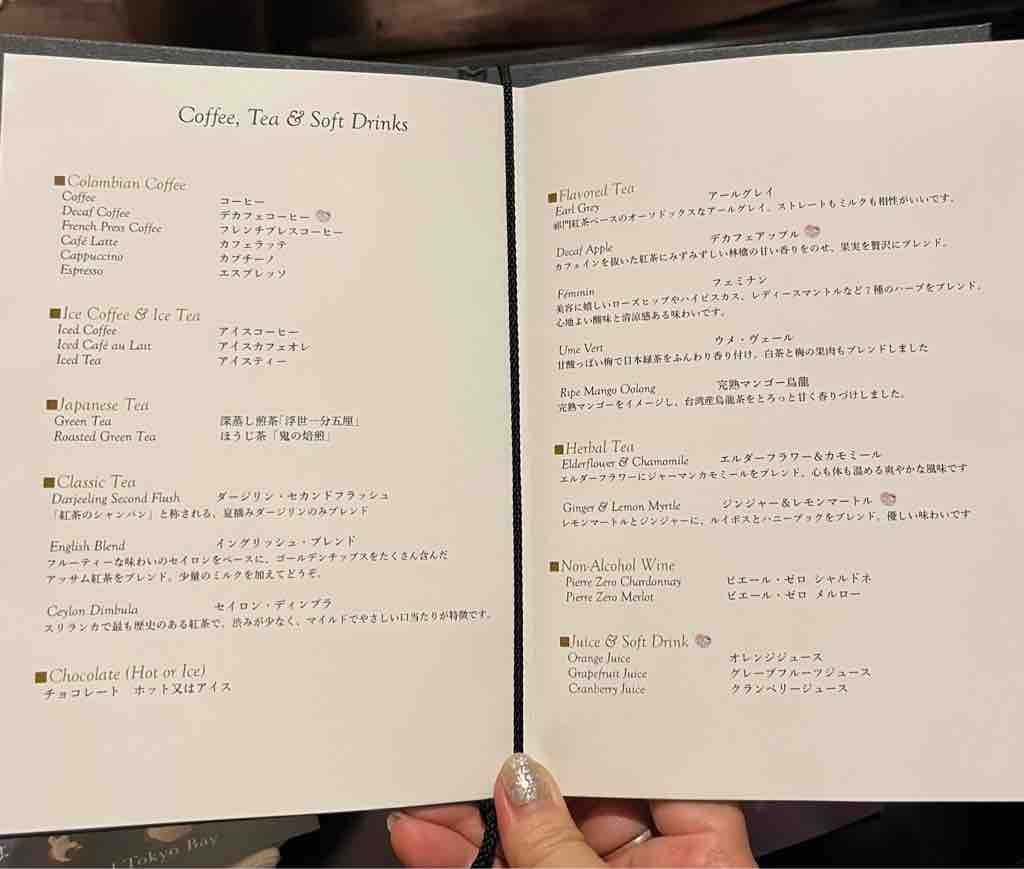 Coffee, Tea & Soft Drinks
■Colombian Coffee
Coffee コーヒー
Decaf Coffee デカフェコーヒー
French Press Coffee フレンチプレスコーヒー
Café Latte カフェラッテ
Cappuccino カプチーノ
Espresso エスプレッソ
■Ice Coffee & Ice Tea
Iced Coffee アイスコーヒー
Iced Café au Lait アイスカフェオレ
Iced Tea アイスティー
■Japanese Tea
Green Tea 深蒸し煎茶「浮世一分五厘」
Roasted Green Tea ほうじ茶「鬼の焙煎」
■Classic Tea
Darjeeling Second Flush ダージリン・セカンドフラッシュ
「紅茶のシャンパン」と称される、夏摘みダージリンのみブレンド
English Blend イングリッシュ・ブレンド
フルーティーな味わいのセイロンをベースに、ゴールデンチップスをたくさん含んだ
アッサム紅茶をブレンド。少量のミルクを加えてどうぞ。
Ceylon Dimbula セイロン・ディンブラ
スリランカで最も歴史のある紅茶で、渋みが少なく、マイルドでやさしい口当たりが特徴です。
■Chocolate (Hot or Ice)
チョコレート ホット又はアイス
■Flavored Tea
Earl Grey アールグレイ
祁門紅茶ベースのオーソドックスなアールグレイ。ストレートもミルクも相性がいいです。
Decaf Apple デカフェアップル
カフェインを抜いた紅茶にみずみずしい林檎の甘い香りをのせ、果実を贅沢にブレンド。
Féminin フェミナン
美容に嬉しいローズヒップやハイビスカス、レディースマントルなど7種のハーブをブレンド。
心地よい酸味と清涼感ある味わいです。
Ume Vert ウメ・ヴェール
甘酸っぱい梅で日本緑茶をふんわり香り付け。白茶と梅の果肉もブレンドしました
Ripe Mango Oolong 完熟マンゴー烏龍
完熟マンゴーをイメージし、台湾産烏龍茶をとろっと甘く香りづけしました。
■Herbal Tea
Elderflower & Chamomile エルダーフラワー＆カモミール
エルダーフラワーにジャーマンカモミールをブレンド。心も体も温める爽やかな風味です
Ginger & Lemon Myrtle ジンジャー＆レモンマートル
レモンマートルとジンジャーに、ルイボスとハニーブッシュをブレンド。優しい味わいです
■Non-Alcohol Wine
Pierre Zero Chardonnay ピエール・ゼロ シャルドネ
Pierre Zero Merlot ピエール・ゼロ メルロー
■Juice & Soft Drink
Orange Juice オレンジジュース
Grapefruit Juice グレープフルーツジュース
Cranberry Juice クランベリージュース
Tokyo Bay